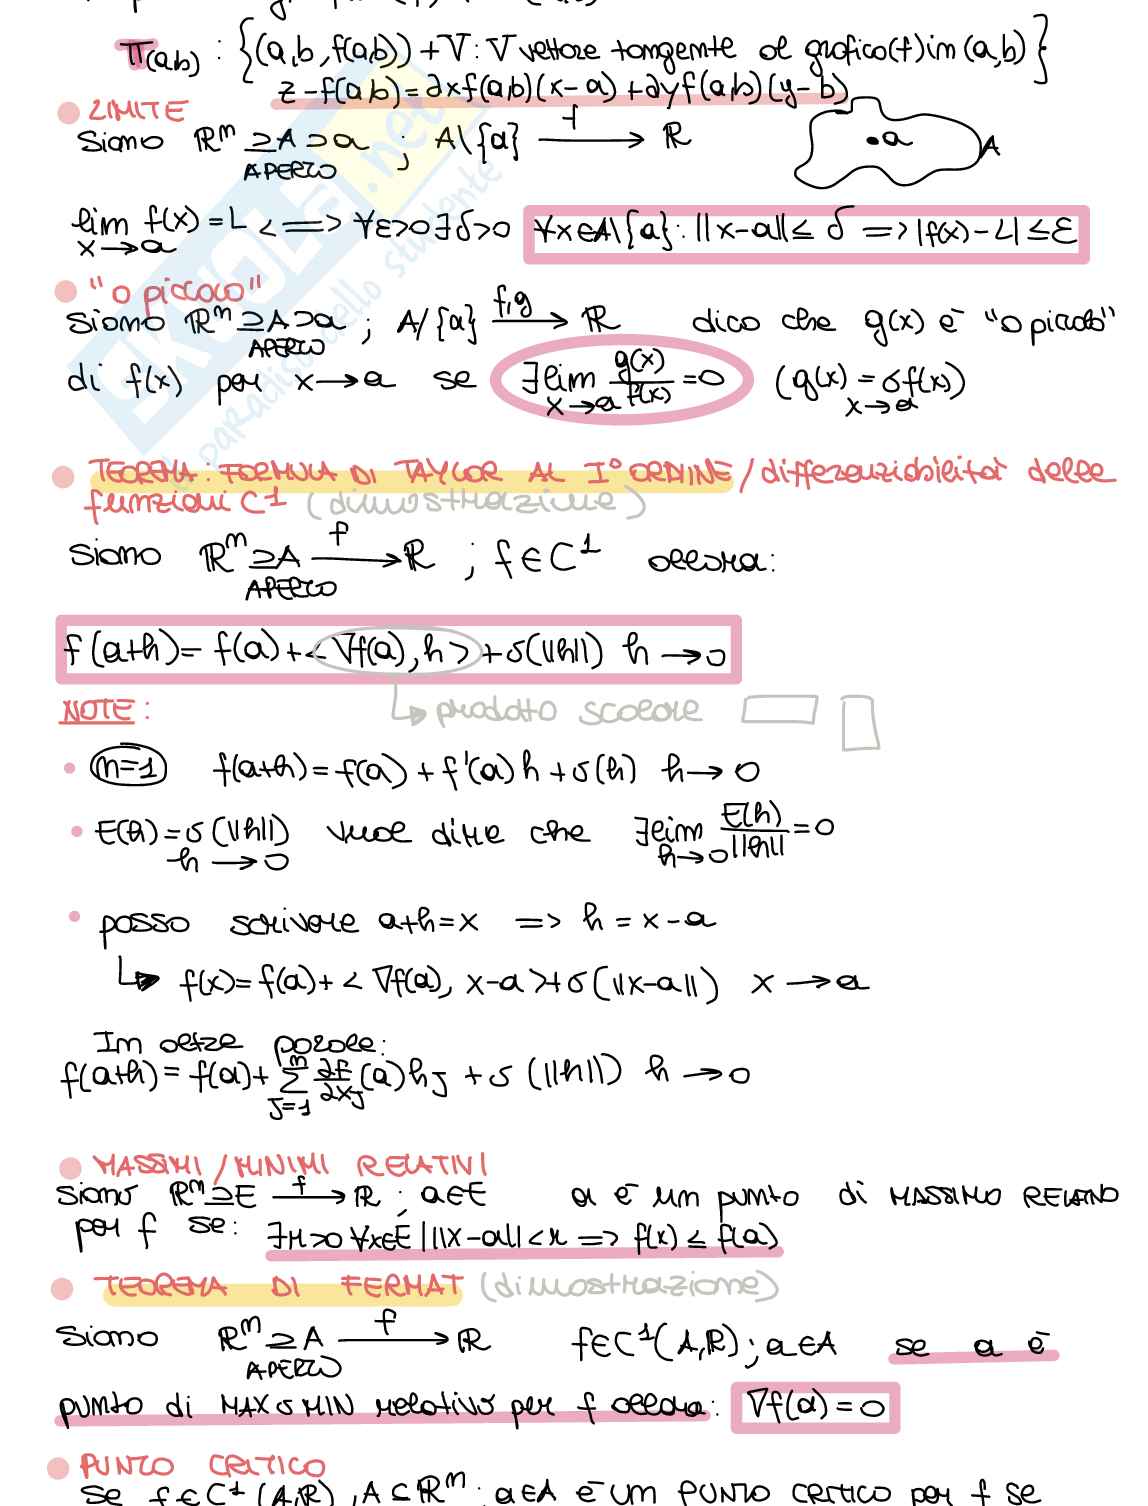 π(a,b) : {(a,b,f(a,b)) + V : V vettore tangente al grafico(f) in (a,b)}
z - f(a,b) = ∂xf(a,b)(x-a) + ∂yf(a,b)(y-b)
LIMITE
Siano ℝⁿ ⊇ A ∋ a ; A\{a} —f→ ℝ
APERTO
a A
lim f(x) = L <=> ∀ε>0 ∃δ>0 ∀x∈A\{a} : ||x-a|| ≤ δ => |f(x)-L| ≤ ε
x→a
"o piccolo"
Siano ℝⁿ ⊇ A ∋ a ; A/{a} —f,g→ ℝ dico che g(x) è "o piccolo"
APERTO
di f(x) per x→a se ∃ lim g(x)/f(x) = 0 (g(x) = σf(x))
x→a x→a
TEOREMA: FORMULA DI TAYLOR AL I° ORDINE / differenziabilità delle
funzioni C1 (dimostrazione)
Siano ℝⁿ ⊇ A —f→ ℝ ; f∈C¹ allora:
APERTO
f(a+h) = f(a) + <∇f(a), h> + σ(||h||) h→0
NOTE: prodotto scalare
(n=1) f(a+h) = f(a) + f'(a)h + σ(h) h→0
E(h) = σ(||h||) vuol dire che ∃ lim E(h)/||h|| = 0
h→0 h→0
posso scrivere a+h=x => h = x-a
↳ f(x) = f(a) + <∇f(a), x-a> + σ(||x-a||) x→a
In altre parole:
f(a+h) = f(a) + Σ ∂f/∂xj (a) hj + σ(||h||) h→0
n
J=1
MASSIMI/MINIMI RELATIVI
Siano ℝⁿ ⊇ E —f→ ℝ ; a∈E a è un punto di MASSIMO RELATIVO
per f se: ∃r>0 ∀x∈E | ||x-a|| < r => f(x) ≤ f(a)
TEOREMA DI FERMAT (dimostrazione)
Siano ℝⁿ ⊇ A —f→ ℝ f∈C¹(A,ℝ) ; a∈A se a è
APERTO
punto di MAX o MIN relativo per f allora: ∇f(a) = 0
PUNTO CRITICO
Se f∈C¹(A,ℝ), A⊆ℝⁿ ; a∈A è UN PUNTO CRITICO per f se
SKUOLA.net
il paradiso dello studente